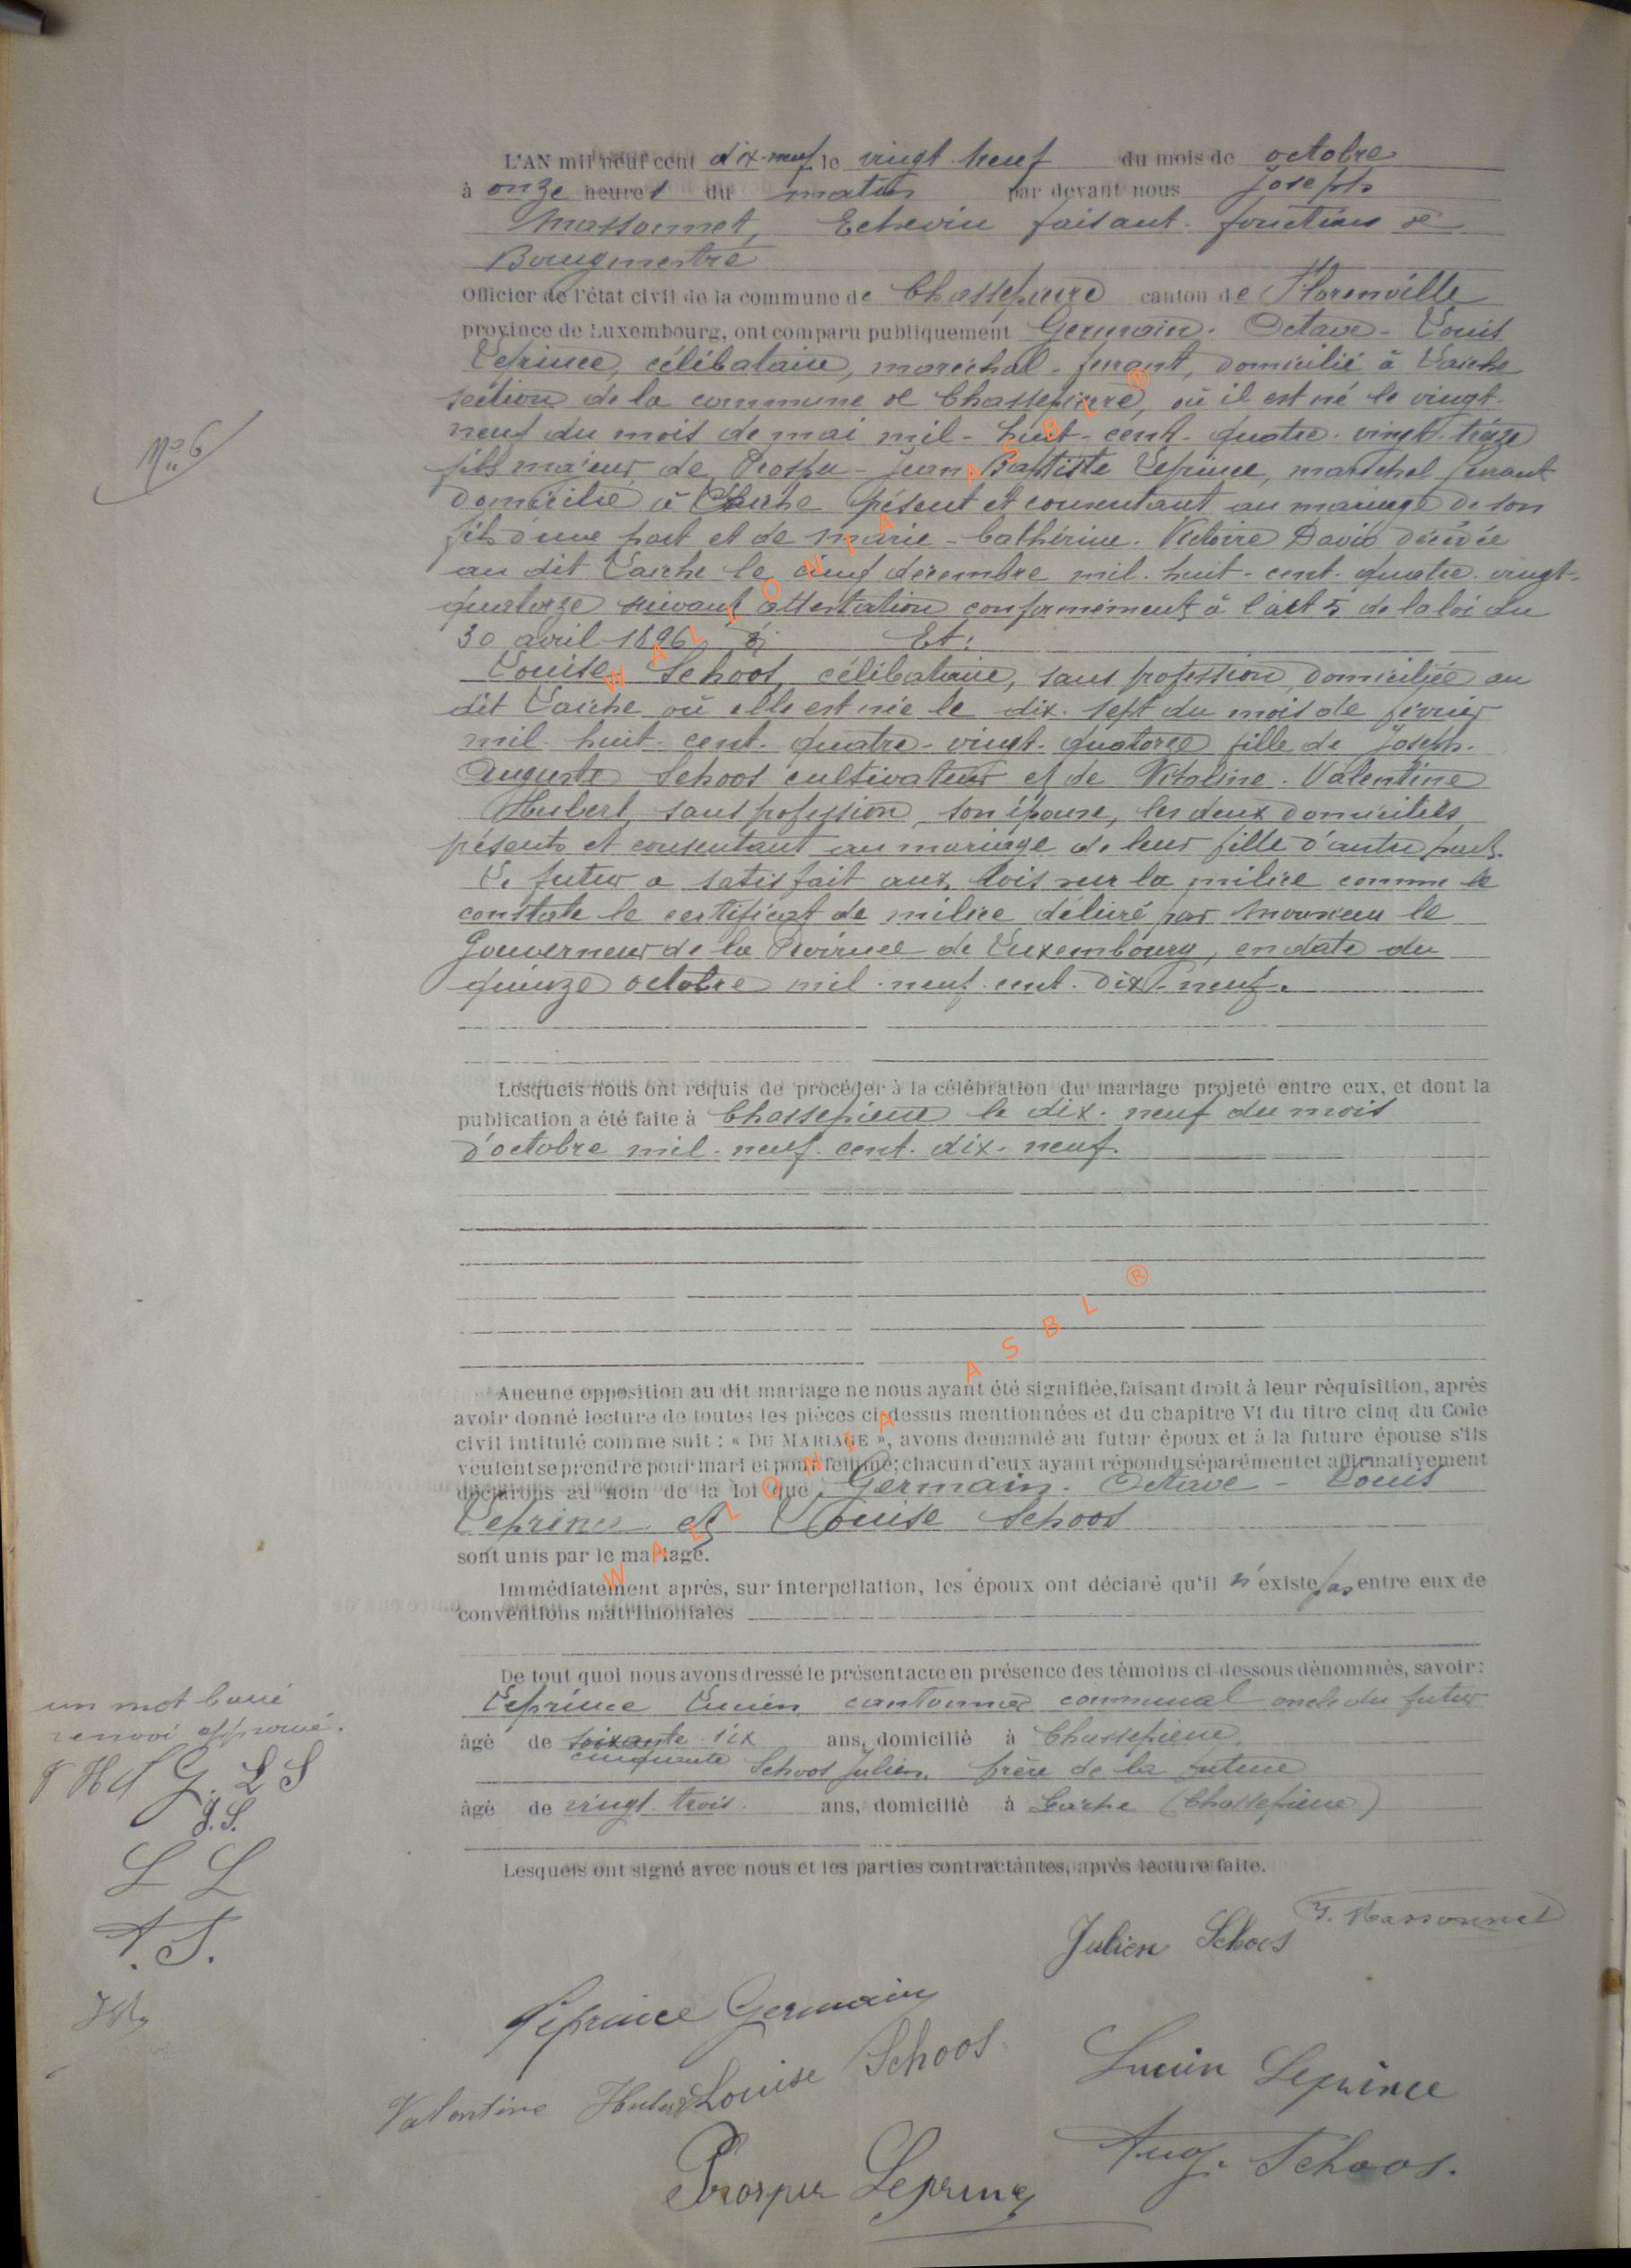 L'AN mil neuf cent dix-neuf le vingt-neuf du mois de octobre
à onze heures du matin par devant nous Joseph
Massonnet, Echevin faisant fonctions de
Bougmestre
Officier de l'état civil de la commune de Chassepierre canton de Florenville
province de Luxembourg, ont comparu publiquement Germain - Octave - Louis
Leprince, célibataire, maréchal-ferrant, domicilié à Laiche
section de la commune de Chassepierre, où il est né le vingt-
neuf du mois de mai mil-huit-cent-quatre-vingt-treize
fils majeur de Prosper-Jean Baptiste Leprince, maréchal ferrant
domicilié à Laiche présent et consentant au mariage de son
fils d'une part et de Marie-Cathérine-Victoire David décédée
au dit Laiche le cinq décembre mil-huit-cent-quatre-vingt-
quatorze suivant attestation conformément à l'art 5 de la loi du
30 avril 1896 Et:
Louise Schoos, célibataire, sans profession, domiciliée au
dit Laiche où elle est née le dix-sept du mois de février
mil-huit-cent-quatre-vingt-quatorze fille de Joseph-
Auguste Schoos cultivateur et de Vitaline-Valentine
Hubert, sans profession, son épouse, les deux domiciliés
présents et consentant au mariage de leur fille d'autre part.
Le futur a satisfait aux lois sur la milice comme le
constate le certificat de milice délivré par Monsieur le
Gouverneur de la Province de Luxembourg, en date du
quinze octobre mil-neuf-cent-dix-neuf.
Lesquels nous ont requis de procéder à la célébration du mariage projeté entre eux, et dont la
publication a été faite à Chassepierre le dix-neuf du mois
d'octobre mil-neuf-cent-dix-neuf.
Aucune opposition au dit mariage ne nous ayant été signifiée, faisant droit à leur réquisition, après
avoir donné lecture de toutes les pièces ci-dessus mentionnées et du chapitre VI du titre cinq du Code
civil intitulé comme suit : « DU MARIAGE », avons demandé au futur époux et à la future épouse s'ils
veulent se prendre pour mari et pour femme; chacun d'eux ayant répondu séparément et affirmativement
déclarons au nom de la loi que Germain-Octave-Louis
Leprince et Louise Schoos
sont unis par le mariage.
Immédiatement après, sur interpellation, les époux ont déclaré qu'il n'existe pas entre eux de
conventions matrimoniales
De tout quoi nous avons dressé le présent acte en présence des témoins ci-dessous dénommés, savoir:
Leprince Lucien, cantonnier communal oncle du futur
âgé de soixante six ans, domicilié à Chassepierre,
cinquante Schoos Julien, frère de la future
âgé de vingt-trois ans, domicilié à Laiche (Chassepierre)
Lesquels ont signé avec nous et les parties contractantes, après lecture faite.
J. Massonnet
Julien Schoos
Leprince Germain
Louise Schoos
Lucien Leprince
Valentine Hubert
Aug. Schoos.
Prosper Leprince
No 6
un mot barré
renvoi approuvé.
L S
J.S.
L L
A.S.
WALLONIA ASBL ®
WALLONIA ASBL ®